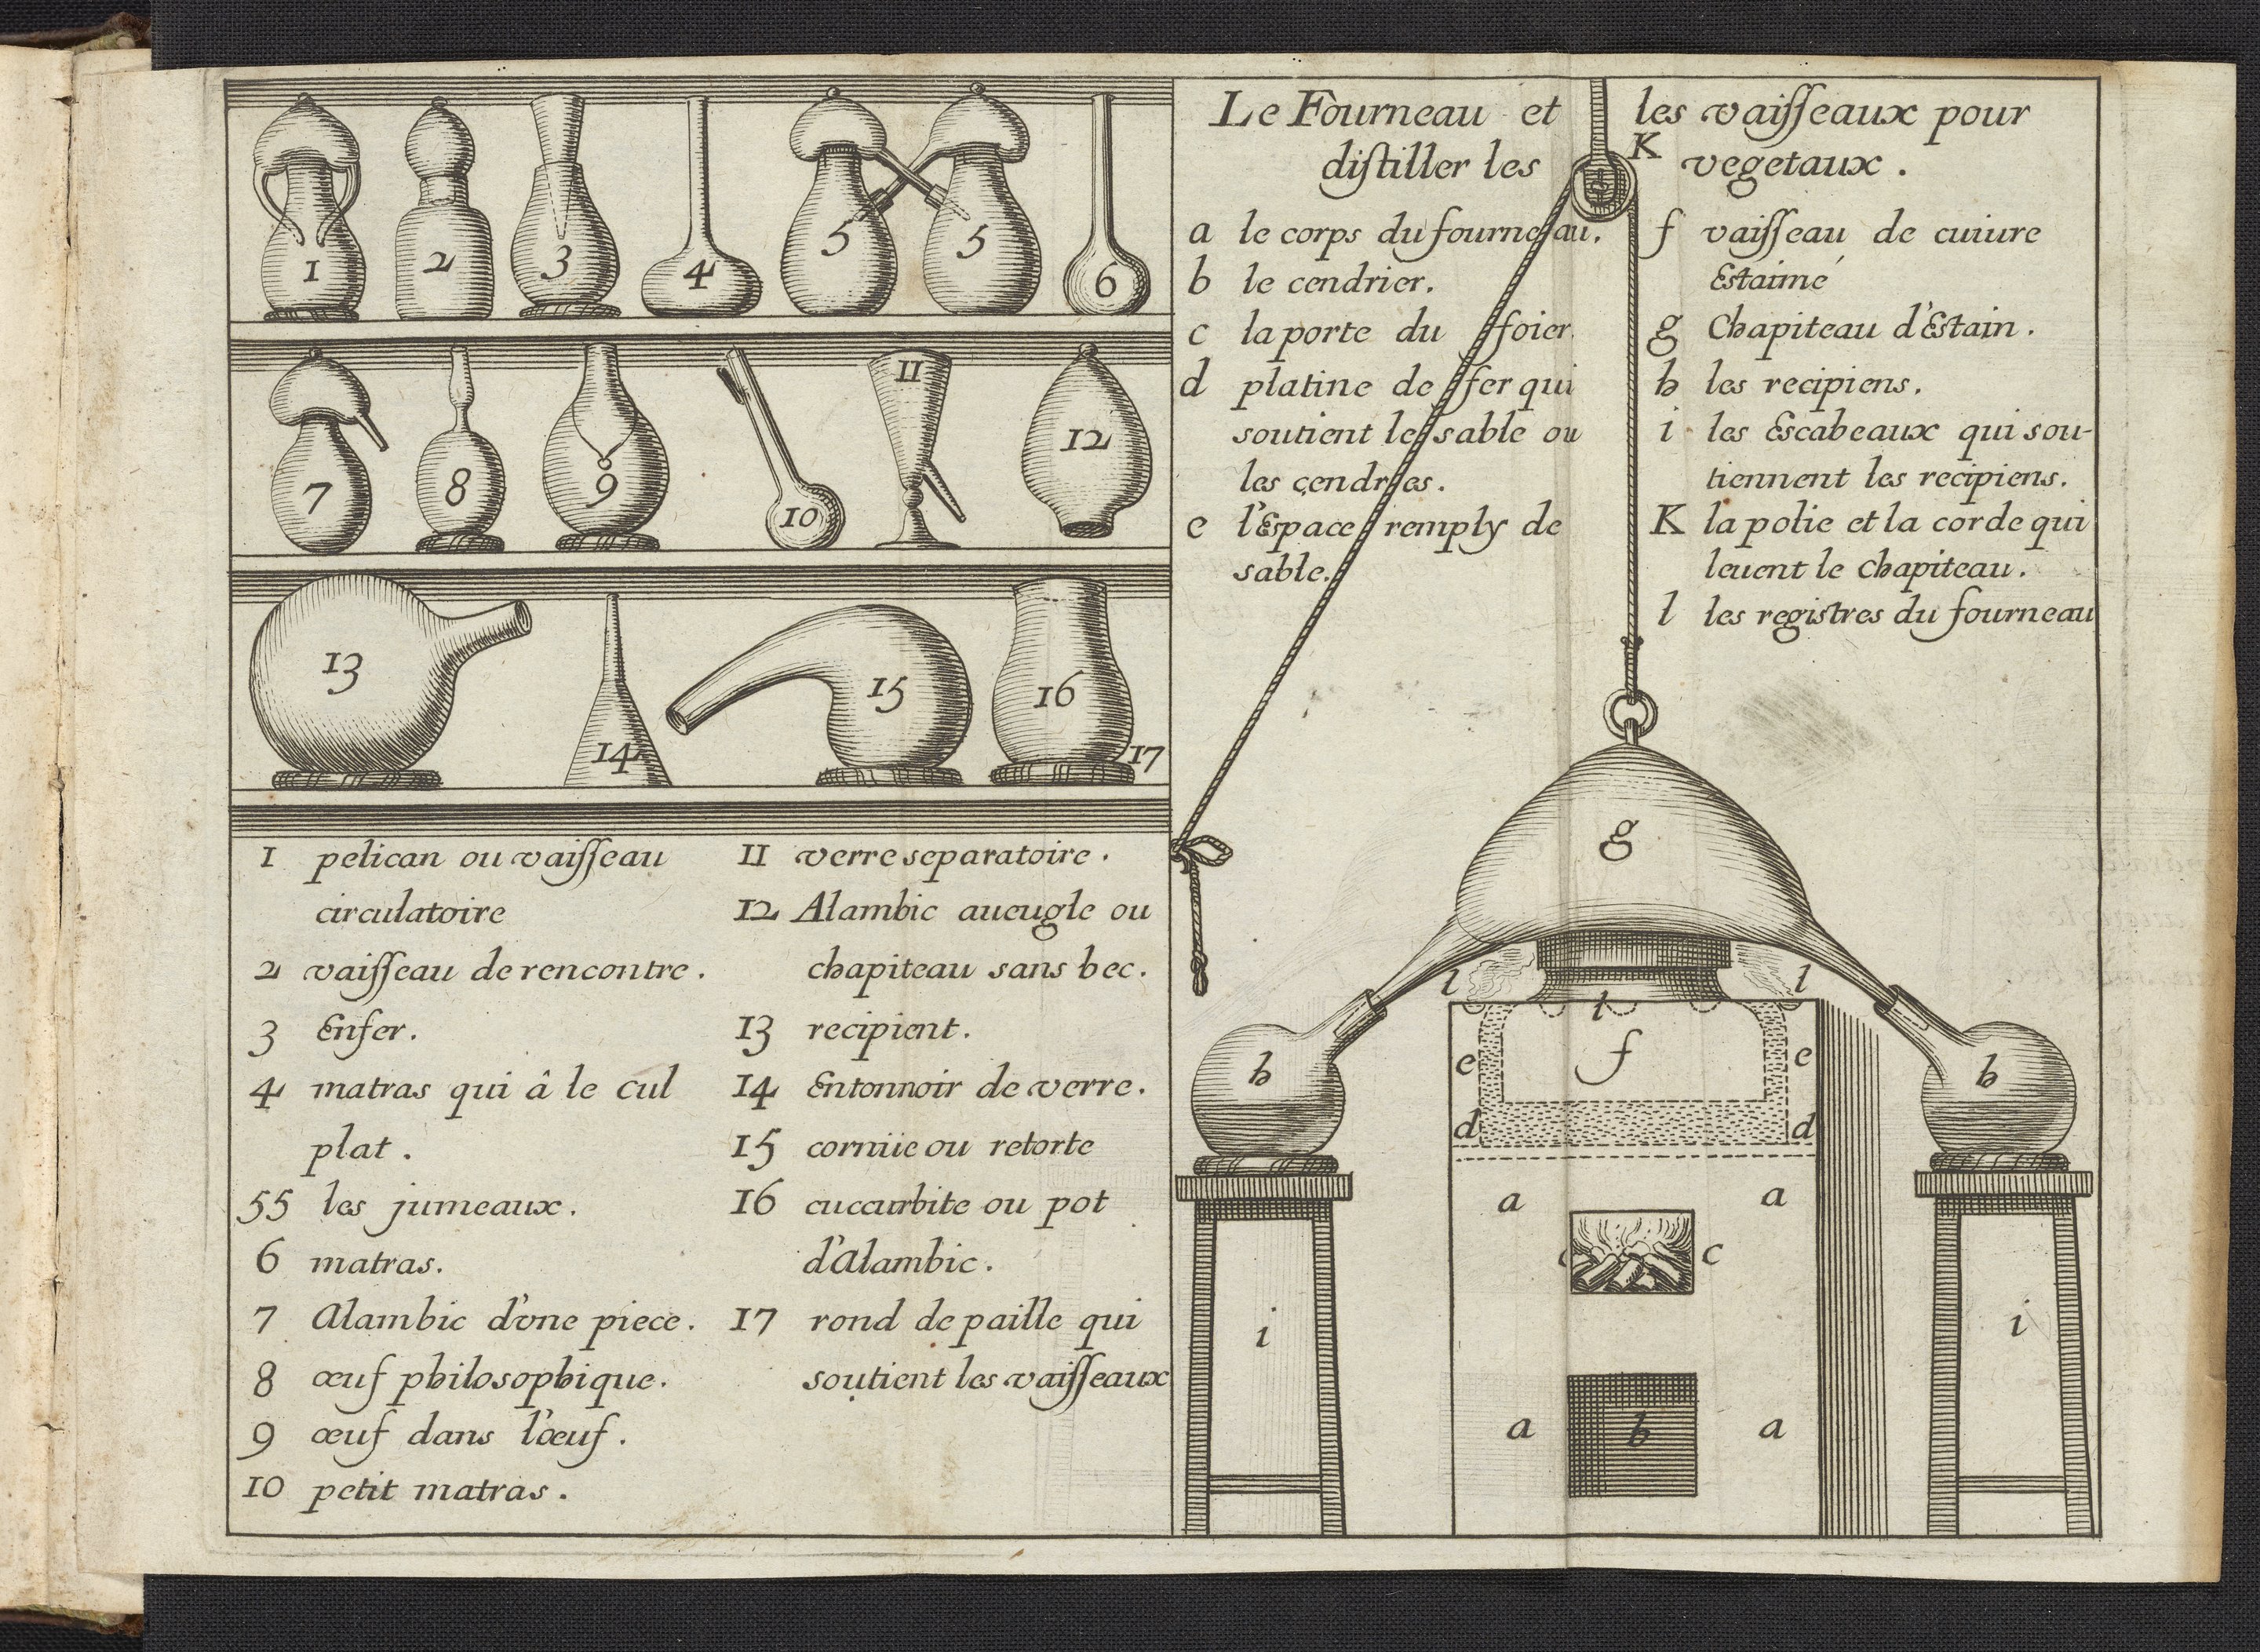 1
2
3
4
5
5
6
7
8
9
10
11
12
13
14
15
16
17
1 pelican ou vaiſſeau
circulatoire
2 vaiſſeau de rencontre.
3 Enfer.
4 matras qui â le cul
plat.
55 les jumeaux.
6 matras.
7 Alambic d'vne piece.
8 œuf philosophique.
9 œuf dans l'œuf.
10 petit matras.
11 verre separatoire.
12 Alambic aueugle ou
chapiteau sans bec.
13 recipient.
14 Entonnoir de verre.
15 cornüe ou retorte
16 cuccurbite ou pot
d'Alambic.
17 rond de paille qui
soutient les vaiſſeaux
Le Fourneau et les vaiſſeaux pour
diſtiller les vegetaux.
K
a le corps du fourneau.
b le cendrier.
c la porte du foier.
d platine de fer qui
soutient le sable ou
les cendres.
e l'Espace remply de
sable.
f vaiſſeau de cuiure
Estaimé
g Chapiteau d'Estain.
h les recipiens.
i les Escabeaux qui sou-
tiennent les recipiens.
K la polie et la corde qui
leuent le chapiteau.
l les registres du fourneau
g
l l
l
h e f e h
d d
a a
c c
i i
a b a